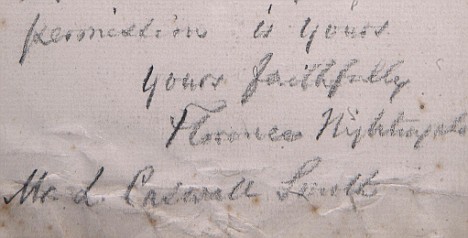 permission is yours
yours faithfully
Florence Nightingale
Mr. L. Caswall Smith